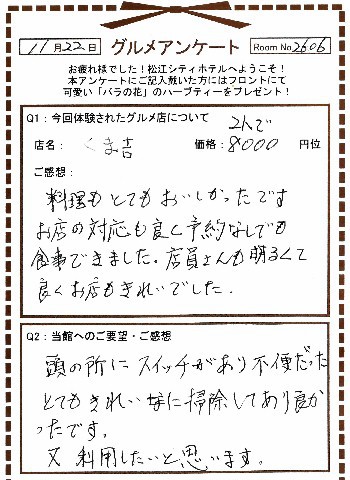 11月22日 グルメアンケート Room No 2606
お疲れ様でした！松江シティホテルへようこそ！
本アンケートにご記入戴いた方にはフロントにて
可愛い「バラの花」のハーブティーをプレゼント！
Q1：今回体験されたグルメ店について 2人で
店名： くま吉 価格：8000 円位
ご感想：
料理もとてもおいしかったです
お店の対応も良く予約なしでも
食事できました。店員さんも明るくて
良くお店もきれいでした.
Q2：当館へのご要望・ご感想
頭の所にスイッチがあり不便だった
とてもきれいなに掃除してあり良か
ったです。
又 利用したいと思います。